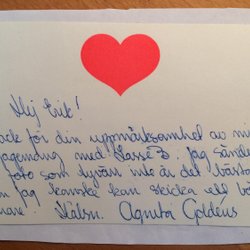 Hej Erik!
ack för din uppmärksamhet av mi
med Lasse B. Jag sände
foto som tyvärr inte är det bästa
Jag kanske kan skicka ett bä
nare. Hälsn. Agneta